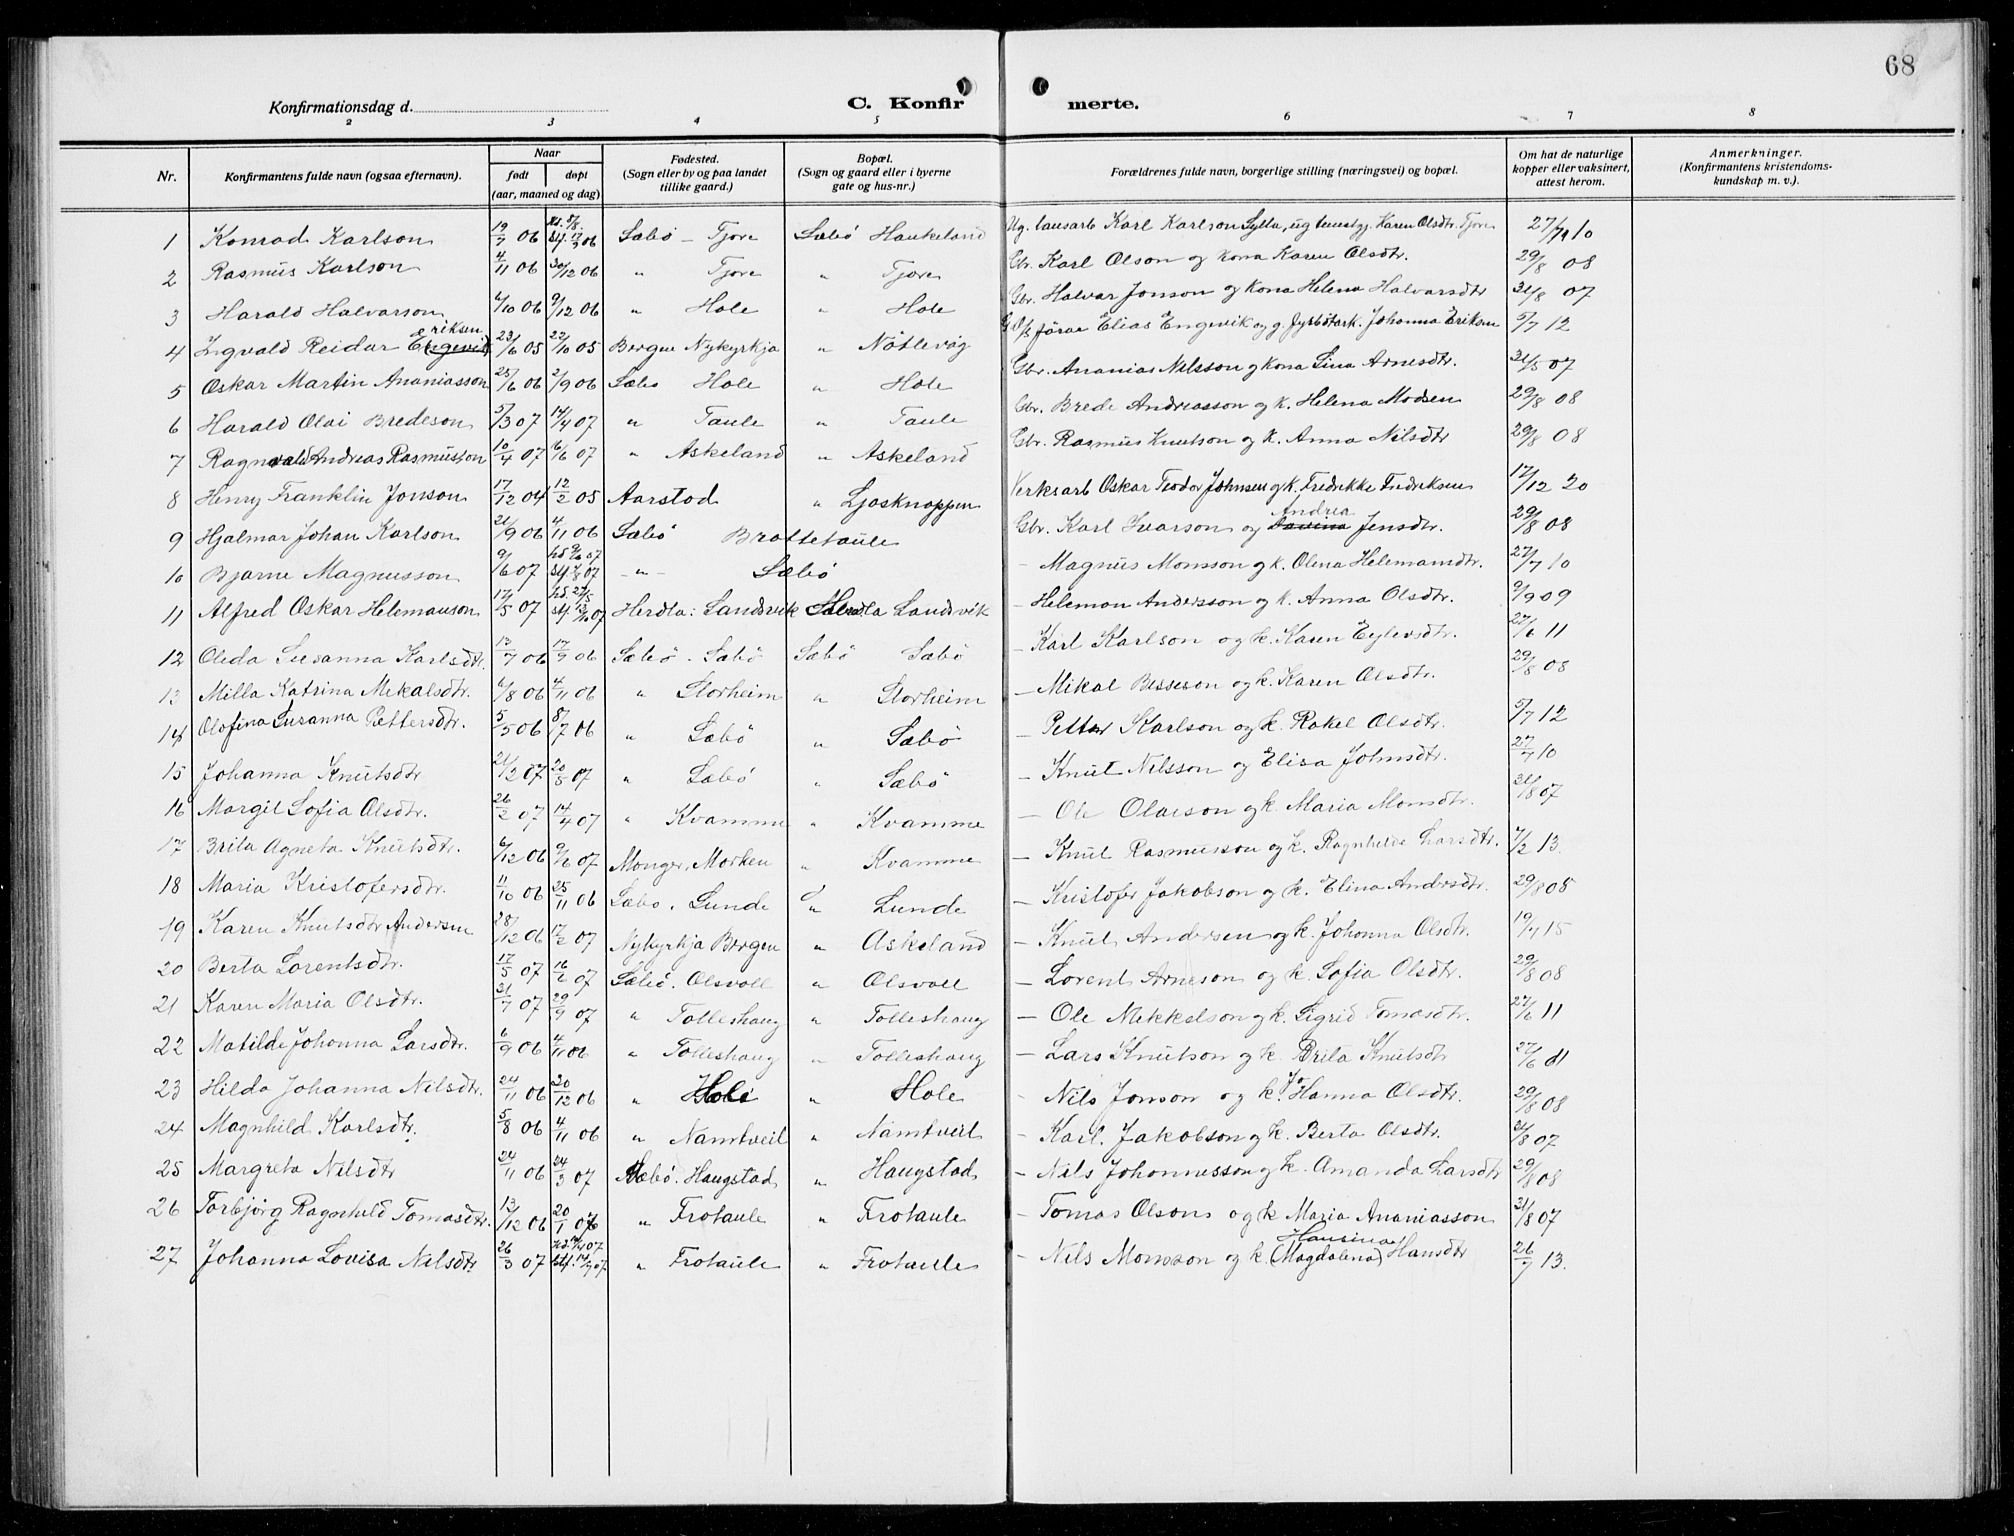 68
Konfirmationsdag d.
C. Konfir merte.
2 3 4 5 6 7 8
Nr. Konfirmantens fulde navn (ogsaa efternavn). Naar født døpt (aar, maaned og dag) Fødested. (Sogn eller by og paa landet tillike gaard.) Bopæl. (Sogn og gaard eller i byerne gate og hus-nr.) Forældrenes fulde navn, borgerlige stilling (næringsvei) og bopæl. Om hat de naturlige kopper eller vaksinert, attest herom. Anmerkninger. (Konfirmantens kristendoms-kundskap m. v.).
1 Konrad Karlson 19/7 06 Sæbö - Tjore Sæbö Haukeland Ug. lausarb Karl Karlson Sylta, ug Karen Olsdtr. Tjore 27/7 10
2 Rasmus Karlson 4/11 06 30/12 06 " Tjore " Tjore Gbr. Karl Olson og kona Karen Olsdtr. 29/8 08
3 Harald Halvarson 6/10 06 9/12 06 " Hole " Hole Gbr. Halvar Jonson og kona Helena Halvarsdtr 31/8 07
4 Ingvald Reidar Engevik Eriksen 23/6 05 22/10 05 Bergen Nykyrkja " Nötlevåg Elias Engevik og g. Johanna Eriksen 5/7 12
5 Oskar Martin Ananiasson 25/6 06 2/9 06 Sæbö Hole " Hole Gbr. Ananias Nilsson og kona Sina Arnesdtr. 31/5 07
6 Harald Olai Bredeson 5/3 07 14/4 07 " Taule " Taule Gbr. Brede Andreasson og k. Helena Madsen 29/8 08
7 Ragnvald Andreas Rasmusson 10/4 07 6/6 07 " Askeland " Askeland Gbr. Rasmus Knutson og k. Anna Nilsdtr 29/8 08
8 Henry Franklin Jonson 17/12 04 12/2 05 Aarstad " Ljosknappen Verksarb Oskar Teodor Johnsen og k. Fredrikke Fredriksen 17/12 20
9 Hjalmar Johan Karlson 21/9 06 4/11 06 Sæbö Brattetaule Gbr. Karl Ivarson og Andrea Jensdtr. 29/8 08
10 Bjarne Magnusson 9/6 07 hd. 9/6 07 - " - Sæbö - Magnus Monsson og k. Olena Helemansdtr. 27/7 10
11 Alfred Oskar Helemanson 17/5 07 Herdla: Sandsvik Herdla Landsvik - Heleman Andersson og k. Anna Olsdtr. 9/9 09
12 Oleda Susanna Karlsdtr. 13/7 06 17/9 06 Sæbö. Sæbö Sæbö Sæbö - Karl Karlson og k. Karen Eylersdtr. 27/6 11
13 Milla Katrina Mekalsdtr. 6/8 06 4/11 06 " Storheim " Storheim - Mikal Besseson og k. Karen Olsdtr. 29/8 08
14 Olofina Susanna Pettersdtr. 5/5 06 8/7 06 " Sæbö " Sæbö - Petter Karlson og k. Rakel Olsdtr. 5/7 12
15 Johanna Knutsdtr 21/2 07 20/5 07 " Sæbö " Sæbö - Knut Nilsson og Elisa Johnsdtr. 27/7 10
16 Margit Sofia Olsdtr. 26/2 07 14/4 07 " Kvamme " Kvamme - Ole Olaison og k. Maria Monsdtr. 31/8 07
17 Brita Agneta Knutsdtr. 6/12 06 9/6 07 Manger, Marken " Kvamme - Knut Rasmusson og k. Ragnhilde Larsdtr. 7/2 13.
18 Maria Kristofersdtr. 11/10 06 25/11 06 Sæbö. Lunde " Lunde - Kristofer Jakobson og k. Elina Andersdtr. 29/8 08
19 Karen Knutsdtr Andersen 28/12 06 17/2 07 Nykyrkja Bergen " Askeland - Knut Andersen og k. Johanna Olsdtr. 19/7 15
20 Berta Lorentsdtr. 17/5 07 16/6 07 Sæbö. Olsvoll " Olsvoll - Lorent Arneson og k Sofia Olsdtr. 29/8 08
21 Karen Maria Olsdtr. 21/7 07 29/9 07 " Tolleshaug " Tolleshaug - Ole Mekkelson og k. Sigrid Tomasdtr. 27/6 11
22 Matilde Johanna Larsdtr. 6/9 06 4/11 06 " Tolleshaug " Tolleshaug - Lars Knutson og k Brita Knutsdtr 27/6 11
23 Hilda Johanna Nilsdtr. 24/11 06 20/12 06 " Hole " Hole - Nils Jonson og k. Johanna Olsdtr. 29/8 08
24 Magnhild Karlsdtr. 5/8 06 4/11 06 " Namtveit " Namtveit - Karl. Jakobson og k. Berta Olsdtr. 31/8 07
25 Margreta Nilsdtr 24/11 06 24/3 07 Sæbö. Haugstad " Haugstad - Nils Johannesson og k. Amanda Larsdtr 29/8 08
26 Torbjörg Ragnhild Tomasdtr. 13/12 06 20/1 07 " Frotaule " Frotaule - Tomas Olson og k Maria Ananiasson 31/8 07
27 Johanna Lovisa Nilsdtr. 26/3 07 " Frotaule " Frotaule - Nils Monsson og k. Hansina (Magdalena) Hansdtr 26/7 13.